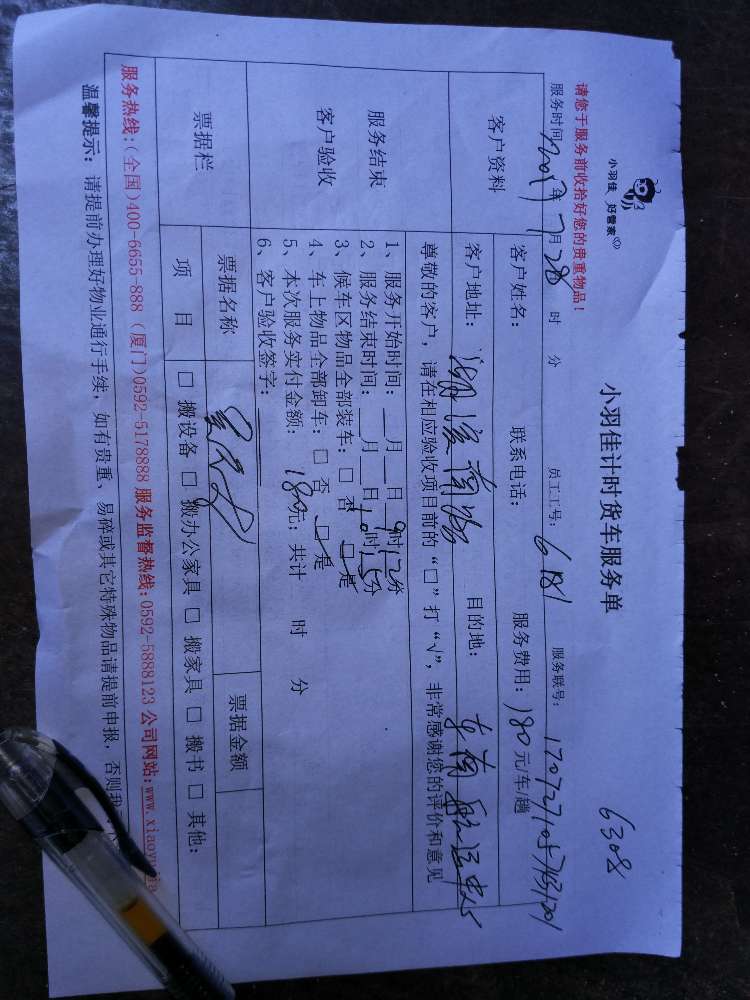 小羽佳 好管家
小羽佳计时货车服务单
6308
请您于服务前收拾好您的贵重物品！
服务时间 2017年 7月 28 时 分 员工工号： 6181 服务联号：
客户资料
客户姓名： 联系电话： 服务费用：180元/车/趟
客户地址： 湖滨南路 目的地： 东南航运中心
尊敬的客户，请在相应验收项目前的“□”打“√”，非常感谢您的评价和意见
服务结束
客户验收
1、服务开始时间：__月__日9时12分
2、服务结束时间：__月__日10时15分
3、候车区物品全部装车：□ 否 □ 是
4、车上物品全部卸车：□ 否 □ 是
5、本次服务实付金额： 180元；共计 时 分
6、客户验收签字：
票据栏
票据名称 票据金额
项 目 □ 搬设备 □ 搬办公家具 □ 搬家具 □ 搬书 □ 其他：
服务热线：(全国)400-6655-888 (厦门)0592-5178888 服务监督热线：0592-5888123 公司网站：www.xiaoyujia
温馨提示：请提前办理好物业通行手续，如有贵重、易碎或其它特殊物品请提前申报，否则我